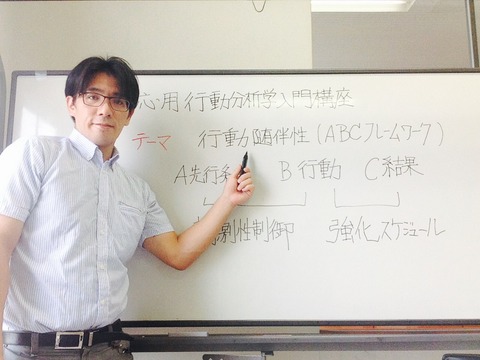 応用行動分析学入門講座
テーマ 行動随伴性(ABCフレームワーク)
A先行条 B行動 C結果
刺激性制御 強化スケジュール